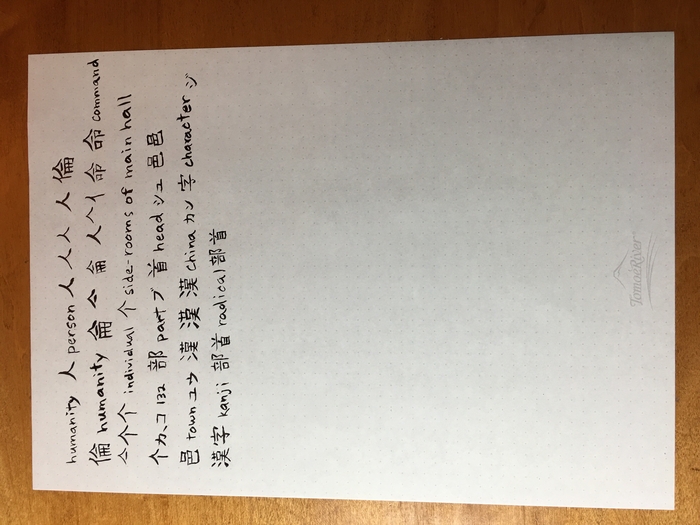 humanity 人 person 人 人 人 人 倫
倫 humanity 侖 亼 侖 人 𠆢 亻 命 命 command
亼 个 个 individual 个 side-rooms of main hall
个 カ、コ 132 部 part ブ 首 head シュ 邑 邑
邑 town ユウ 漢 漢 漢 China カン 字 character ジ
漢字 kanji 部首 radical 部首
TomoeRiver